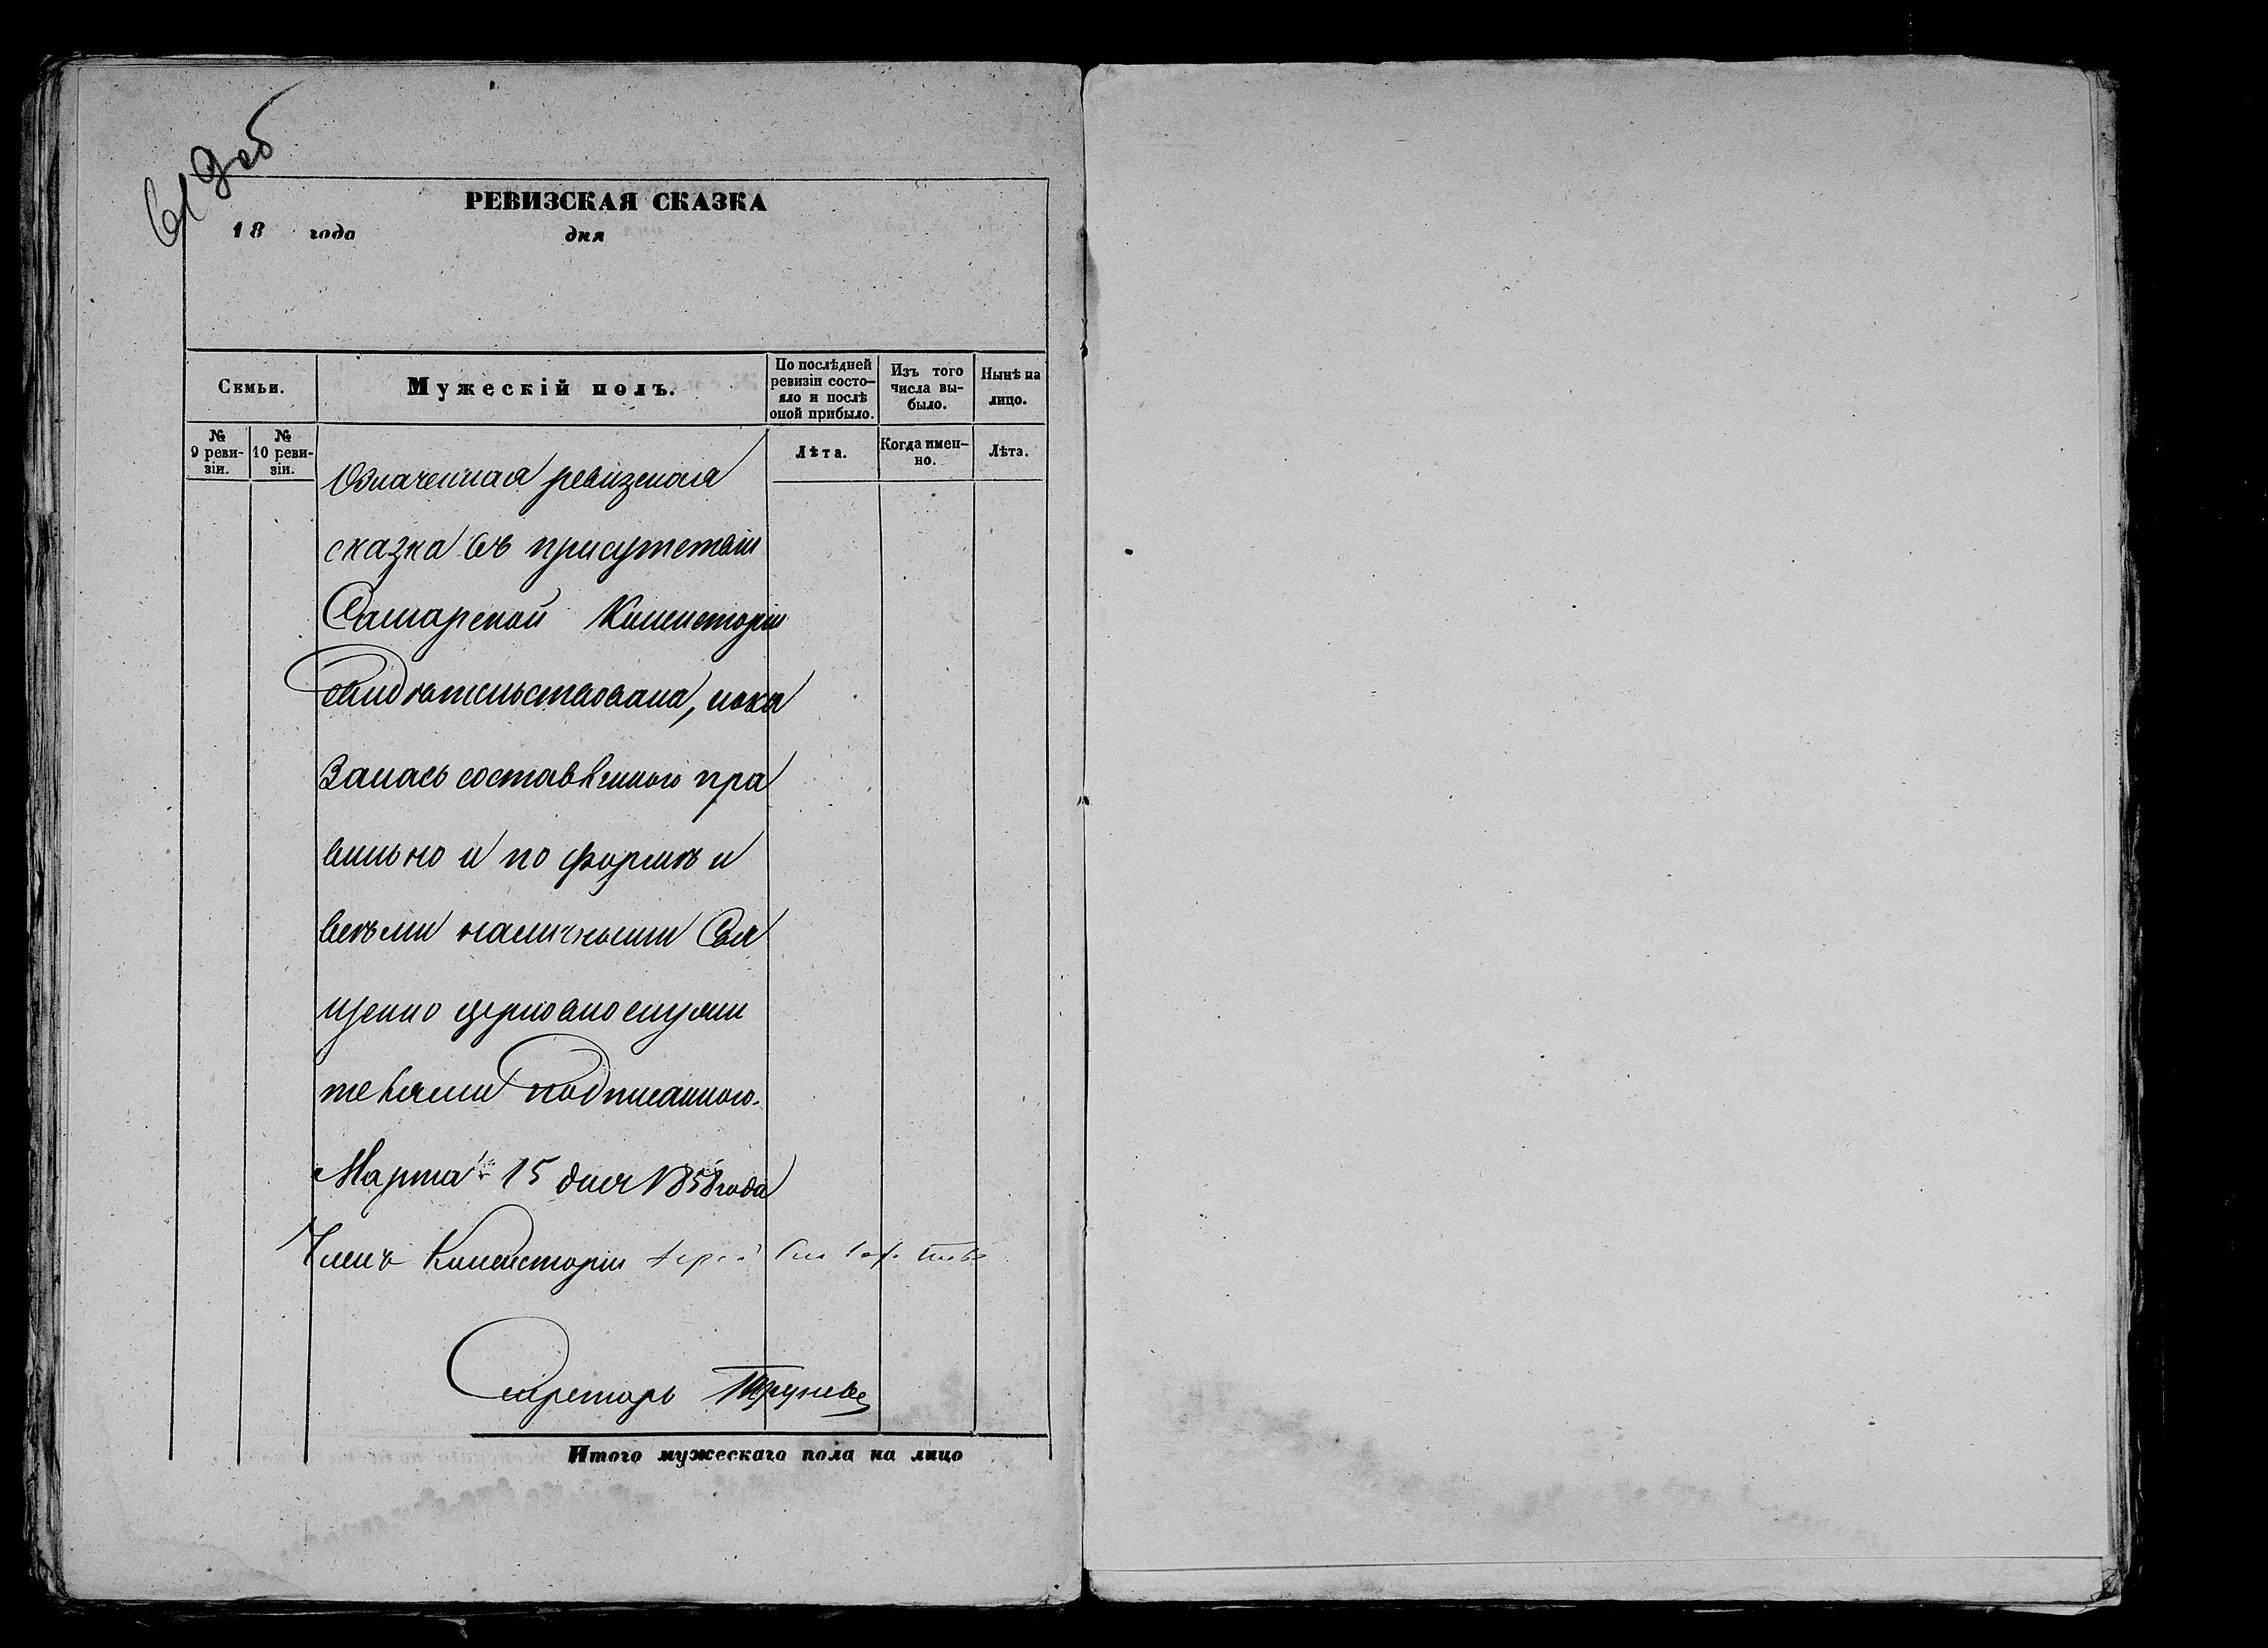 РЕВИЗСКАЯ СКАЗКА
18 года дня
Семьи.
Мужескій полъ.
По послѣдней ревизіи состо-
яло и послѣ оной прибыло.
Изъ того числа вы-
было.
Нынѣ на лицо.
№ 9 реви-
зіи.
№ 10 реви-
зіи.
Лѣта.
Когда имен-
но.
Лѣта.
Означенная ревизская
сказка въ присутствіи
Самарской Консисторіи
Свидѣтельствована, пока
залась составленною пра
вильно и по формѣ и
всѣми наличными Свя
щенно церковнослужи
телями подписанною.
Марта 15 дня 1858 года
Членъ Консисторіи
Секретарь
Итого мужескаго пола на лицо